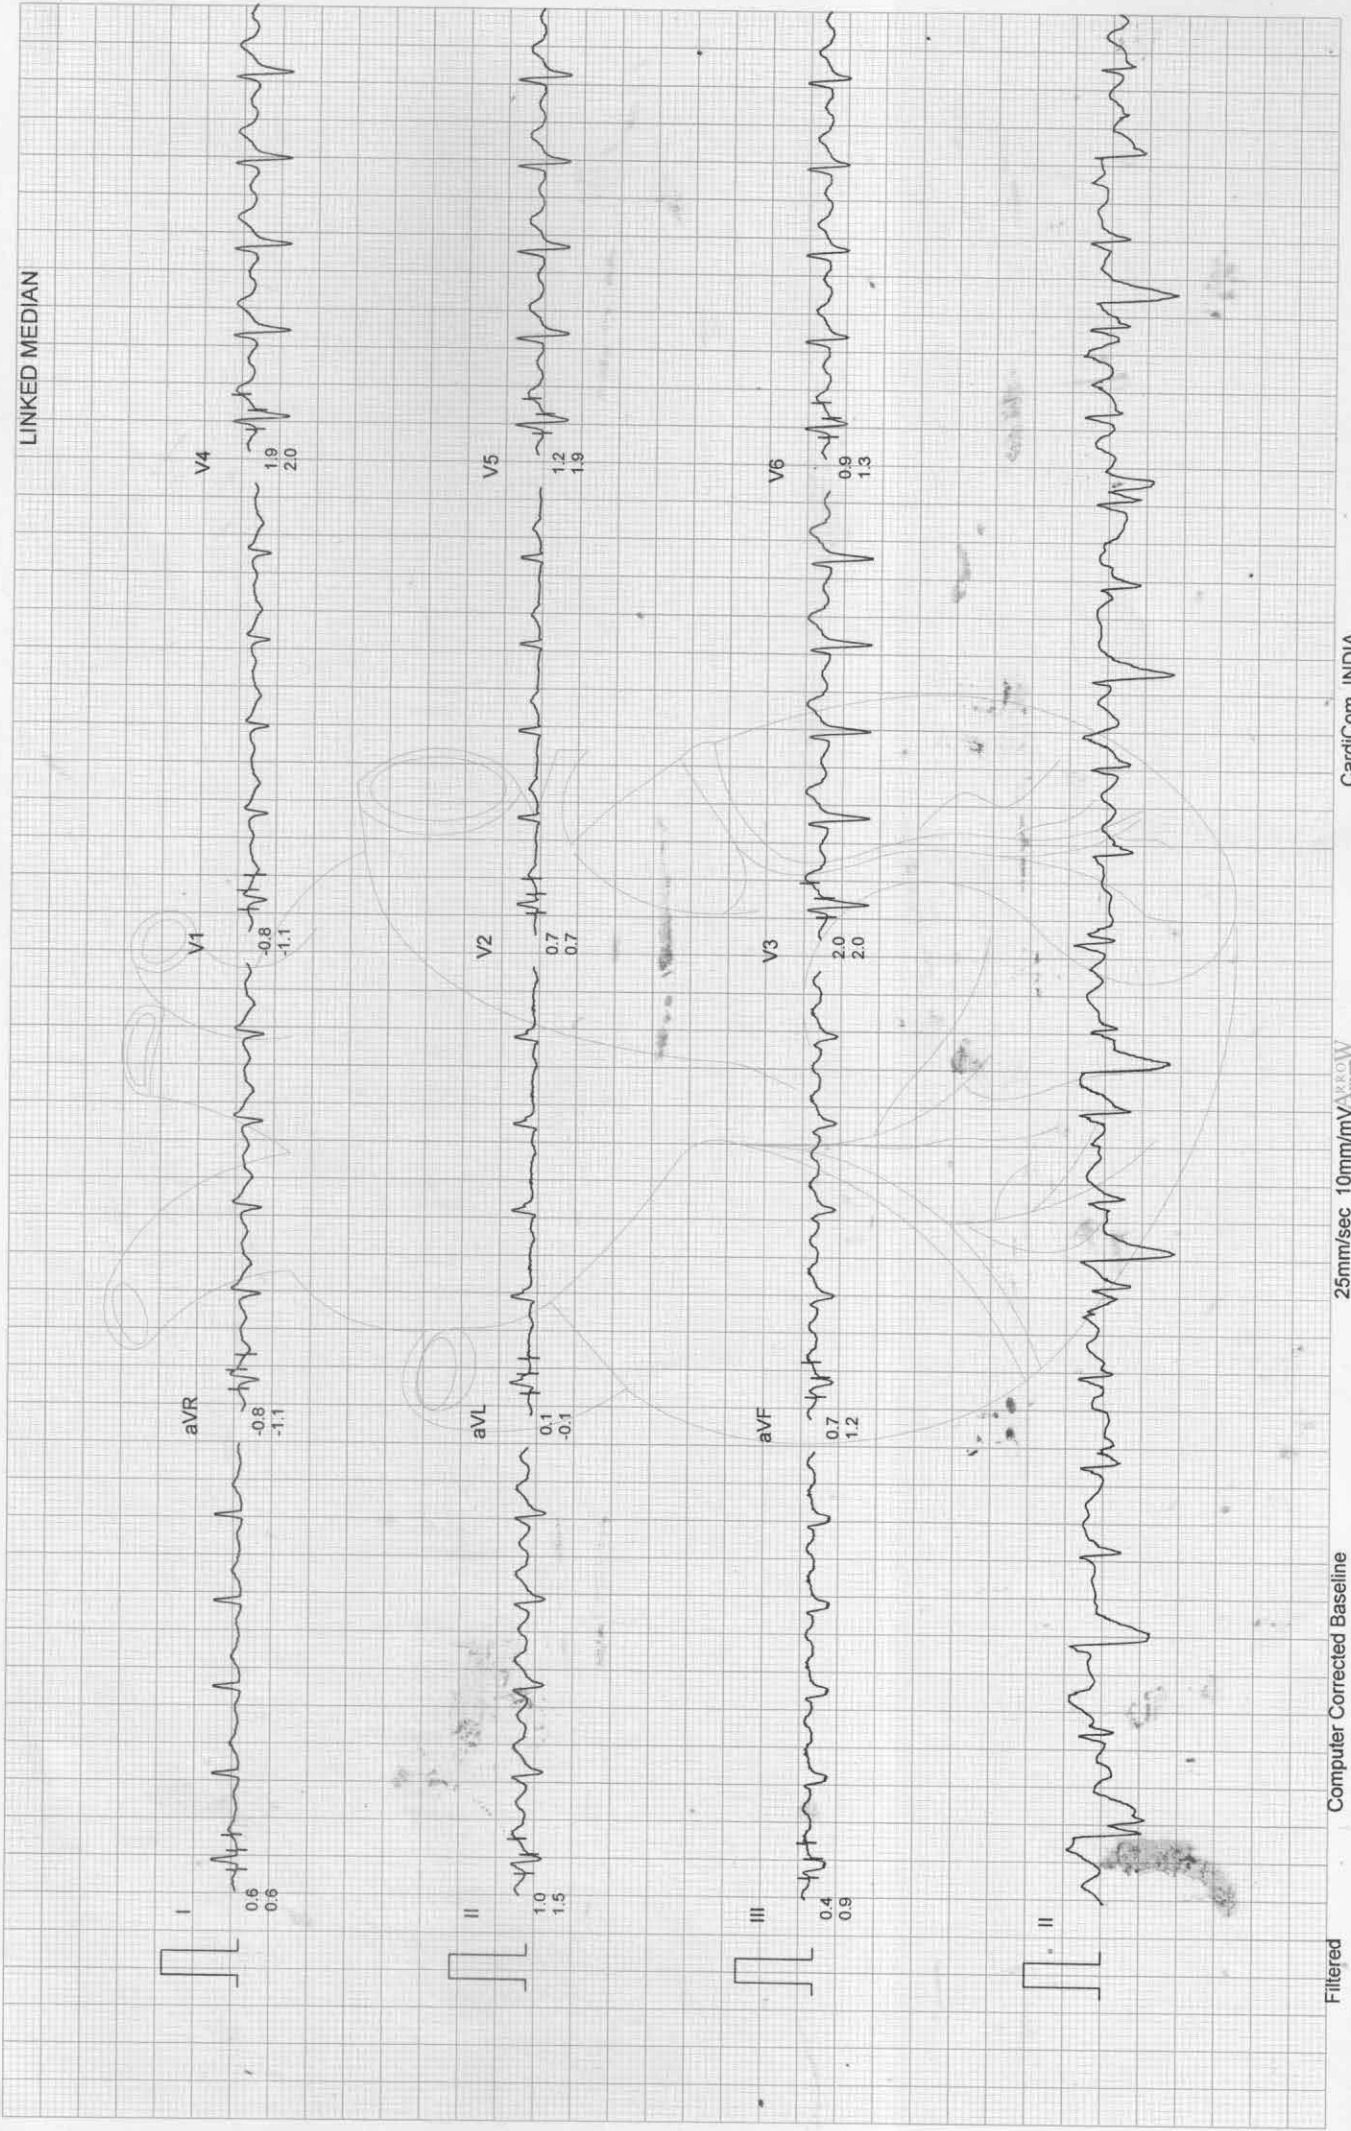 LINKED MEDIAN
I
0.6
0.6
aVR
-0.8
-1.1
V1
-0.8
-1.1
V4
1.9
2.0
II
1.0
1.5
aVL
0.1
-0.1
V2
0.7
0.7
V5
1.2
1.9
III
0.4
0.9
aVF
0.7
1.2
V3
2.0
2.0
V6
0.9
1.3
II
Filtered
Computer Corrected Baseline
25mm/sec 10mm/mV
ARROW
CardiCom, INDIA